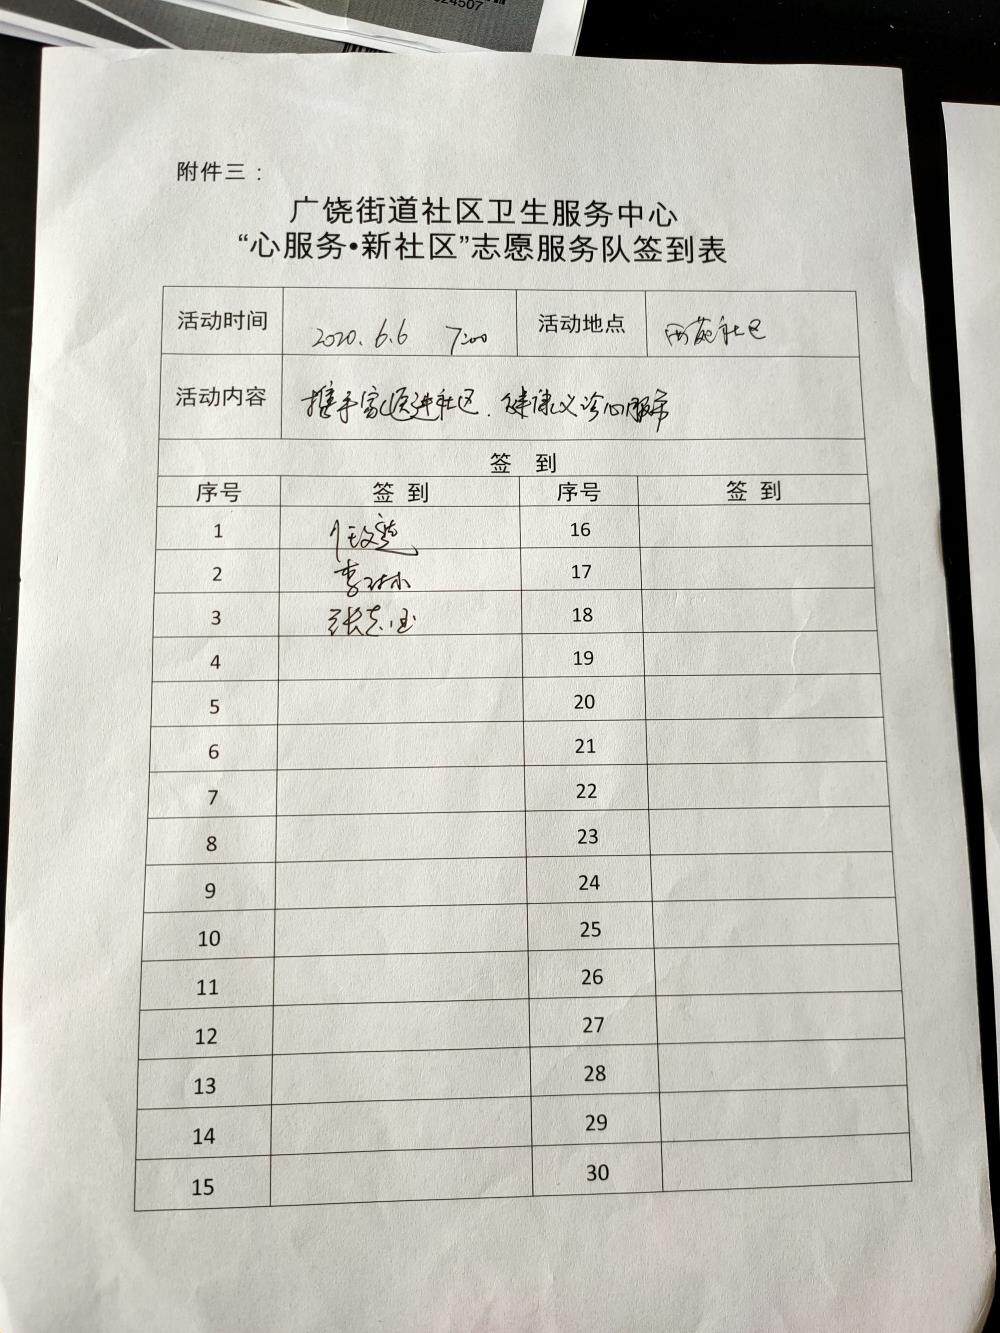 24507
附件三：
广饶街道社区卫生服务中心
“心服务•新社区”志愿服务队签到表
活动时间 2020.6.6 7:00 活动地点 西苑社区
活动内容 携手家医进社区.健康义诊心服务
签 到
序号 签 到 序号 签 到
1 任文莲 16
2 李 17
3 张志国 18
4 19
5 20
6 21
7 22
8 23
9 24
10 25
11 26
12 27
13 28
14 29
15 30